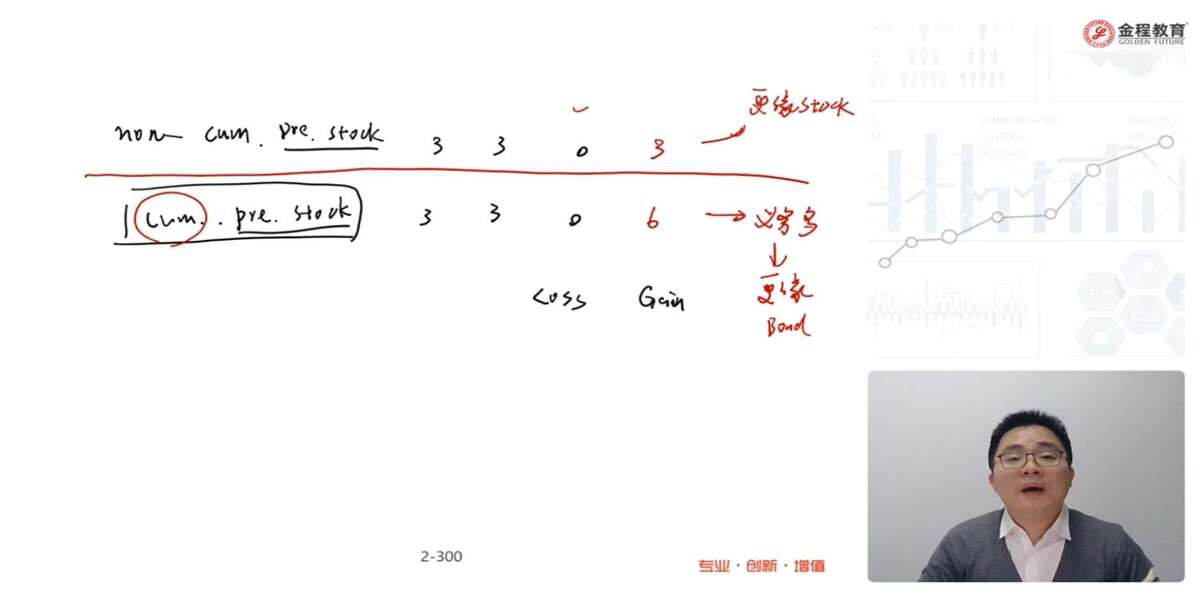 金程教育
GOLDEN FUTURE
更像stock
non cum. pre. stock 3 3 0 3
cum. pre. stock 3 3 0 6 义务多
Loss Gain 更像
Bond
2-300
专业·创新·增值